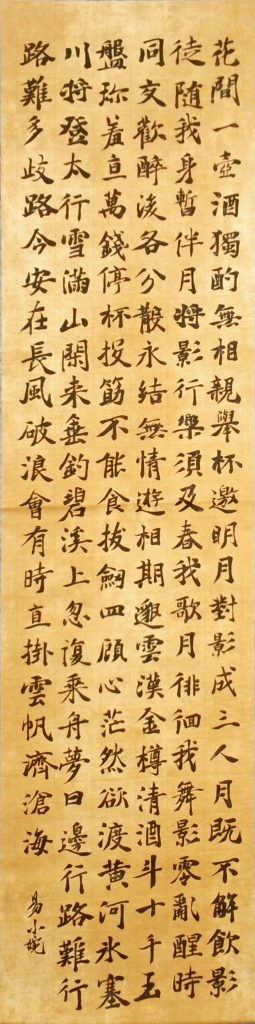 花間一壺酒獨酌無相親舉杯邀明月對影成三人月既不解飲影
徒隨我身暫伴月將影行樂須及春我歌月徘徊我舞影零亂醒時
同交歡醉後各分散永結無情遊相期邈雲漢金樽清酒斗十千玉
盤珎羞直萬錢停杯投筯不能食拔劒四顧心茫然欲渡黃河氷塞
川將登太行雪滿山閑来垂釣碧溪上忽復乘舟夢日邊行路難行
路難多歧路今安在長風破浪會有時直掛雲帆濟滄海
易小